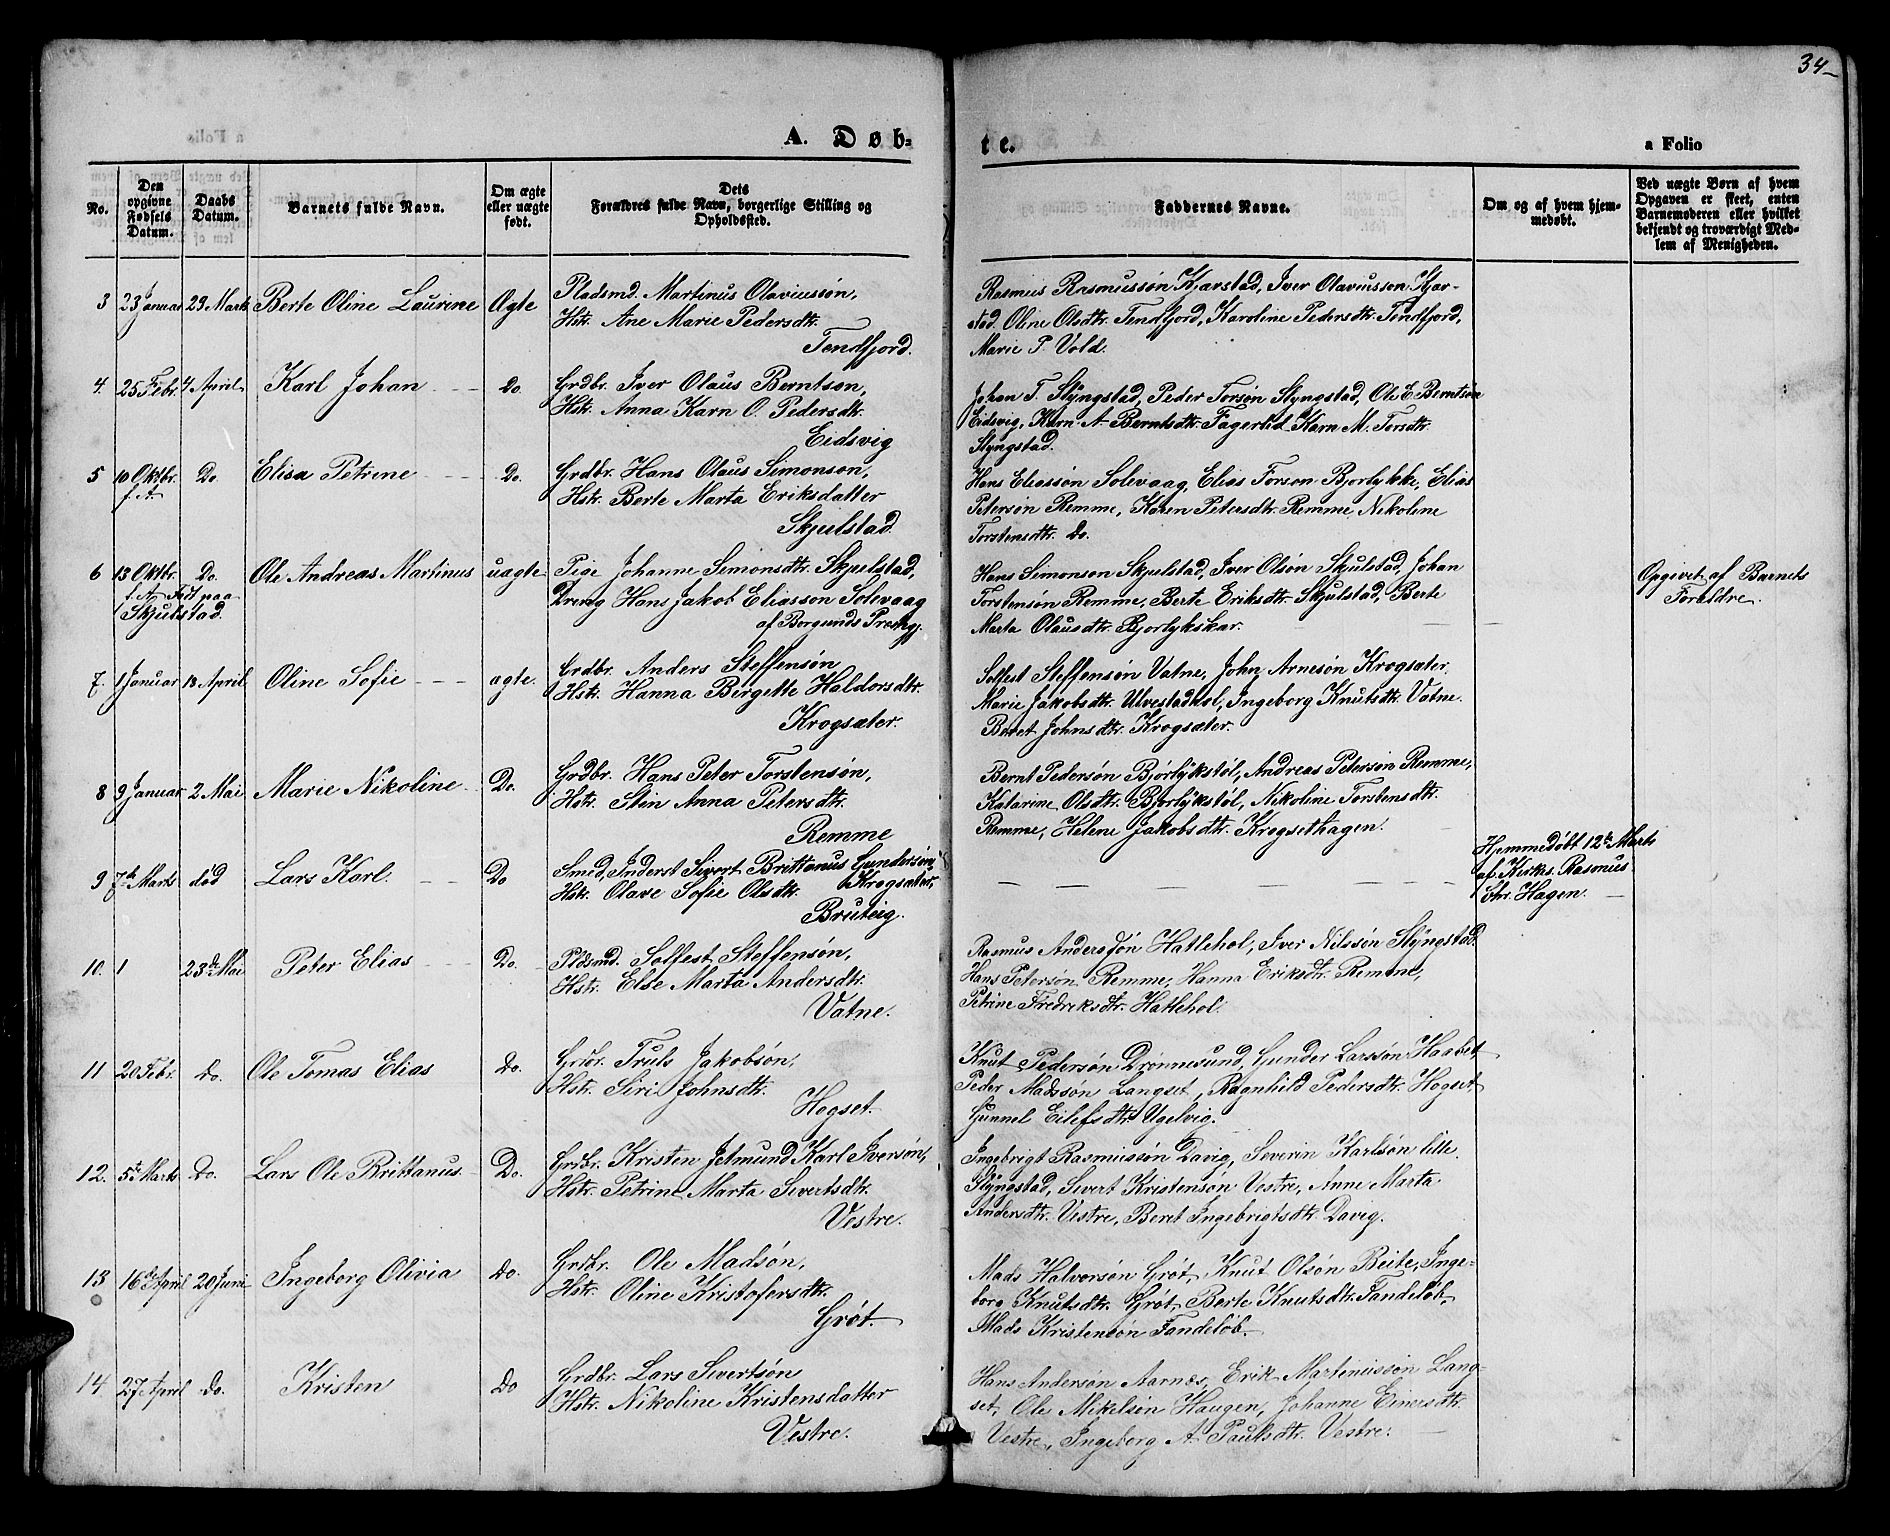 34
A. Døb-
te.
a Folio
No.
Den opgivne Fødsels Datum.
Daabs Datum.
Barnets fulde Navn.
Om ægte eller uægte født.
Dets Forældres fulde Navn, borgerlige Stilling og Opholdssted.
Faddernes Navne.
Om og af hvem hjemmedøbt.
Ved uægte Børn af hvem Opgaven er skeet, enten Barnemoderen eller hvilket bekjendt og troværdigt Medlem af Menigheden.
3 23 Januar 29 Marts Berte Oline Laurine Ægte Pladsmd. Martinus Olaviussøn,
Hstr. Ane Marie Pedersdtr.
Tendfjord.
Rasmus Rasmussøn Kjærstad, Iver Olaviussøn Kjær-
stad, Oline Olsdtr. Tendfjord, Karoline Pedersdtr. Tendfjord,
Marie P. Vold.
4. 25 Febr. 4 April Karl Johan Do. Grdbr. Iver Olaus Berntson,
Hstr. Anna Karn O. Pedersdtr.
Eidsvig
Johan T. Slyngstad, Peder Torsøn Slyngstad, Ole E. Berntsøn
Eidsvig, Karn A. Berntsdtr. Fagerlid, Karn M. Torsdtr.
Slyngstad.
5 10 Oktbr. f. A. Do. Elisa Petrine Do. Grdbr. Hans Olaus Simonson,
Hstr. Berte Marta Eriksdatter
Skjelstad.
Hans Eliassøn Solevaag, Elias Torson Bjorlykke, Elias
Petersøn Remme, Karen Petersdtr. Remme, Nikoline
Torstensdtr. do.
6 13 Oktbr. Do. Ole Andreas Martinus uægte Pige Johanne Simonsdtr. Skjelstad,
f. A. Født paa
Skjulstad.
Dreng Hans Jakob Eliasson Solevaag
af Borgunds Prestgj.
Hans Simonson Skjelstad, Iver Olsøn Skjulstad, Johan
Torstensøn Remme, Berte Eriksdtr. Skjulstad, Berte
Marta Olausdtr. Bjorlykskar.
Opgivet af Barnets
Forældre.
7. 1 Januar 18 April Oline Sofie ægte. Grdbr. Anders Steffensøn
Hstr. Hanna Birgitte Haldorsdtr.
Krogsæter.
Solfest Steffensøn Vatne, John Arnesøn Krogsæter.
Marie Jakobsdtr. Ulvestadhol, Ingeborg Knutsdtr. Vatne.
Beret Johnsdtr. Krogsæter.
8 9 Januar 2 Mai Marie Nikoline Do. Grdbr. Hans Peter Torstensøn,
Hstr. Stin Anna Petersdtr.
Remme
Bernt Pedersøn Bjørlykstøl, Andreas Petersøn Remme,
Katarine Olsdtr. Bjorlykstøl, Nikoline Torstensdtr.
Remme, Helene Jakobsdtr. Krogsethagen.
9 7de Marts død Lars Karl. Do Smed, Inderst Sivert Brittanus Gundersøn,
Krogsæter,
Hstr. Olave Sofie Olsdtr.
Bruteig.
Hjemmedøbt 12te Marts
af Kirks. Rasmus
Chr. Hagen.
10. 1 23de Mai Peter Elias Do. Pldsmd. Solfest Steffensøn,
Hstr. Else Marta Andersdtr.
Vatne.
Rasmus Andersøn Hatlehol, Iver Nilssøn Slyngstad.
Hans Petersøn Remme, Hanna Eriksdtr. Remme,
Petrine Fredriksdtr. Hatlehol.
11 20 Febr. do. Ole Tomas Elias Do. Grdbr. Truls Jakobsøn,
Hstr. Siri Johnsdtr.
Hogset.
Knut Pedersøn Dronnesund, Gunder Larssøn Haabet
Peder Madssøn Langset, Ragnhild Pedersdtr. Hogset
Gunnel Eilefsdtr. Ugelvig.
12. 5te Marts Do. Lars Ole Brittanus Do. Grdbr. Kristen Jetmund Karl Iversøn,
Hstr. Petrine Marta Sivertsdtr.
Vestre.
Ingebrigt Rasmussøn Davig, Severin Karlsøn lille
Slyngstad, Sivert Kristensøn Vestre, Anne Marta
Andersdtr. Vestre, Beret Ingebrigtsdtr. Davig.
13 16de April 20 Juni Ingeborg Olivia do. Grdbr. Ole Madsøn,
Hstr. Oline Kristofersdtr.
Grøt.
Mads Halvorsøn Grøt, Knut Olsøn Beite, Inge-
borg Knutsdtr. Grøt, Berte Knutsdtr. Tandeløb,
Mads Kristensøn Tandeløb.
14 27 April do. Kristen do Grdbr. Lars Sivertsøn
Hstr. Nikoline Kristensdatter
Vestre.
Hans Andersøn Aarnæs, Erik Martinussøn Lang-
set, Ole Mikelsøn Haugen, Johanne Einersdtr.
Vestre, Ingeborg A. Paulsdtr. Vestre.